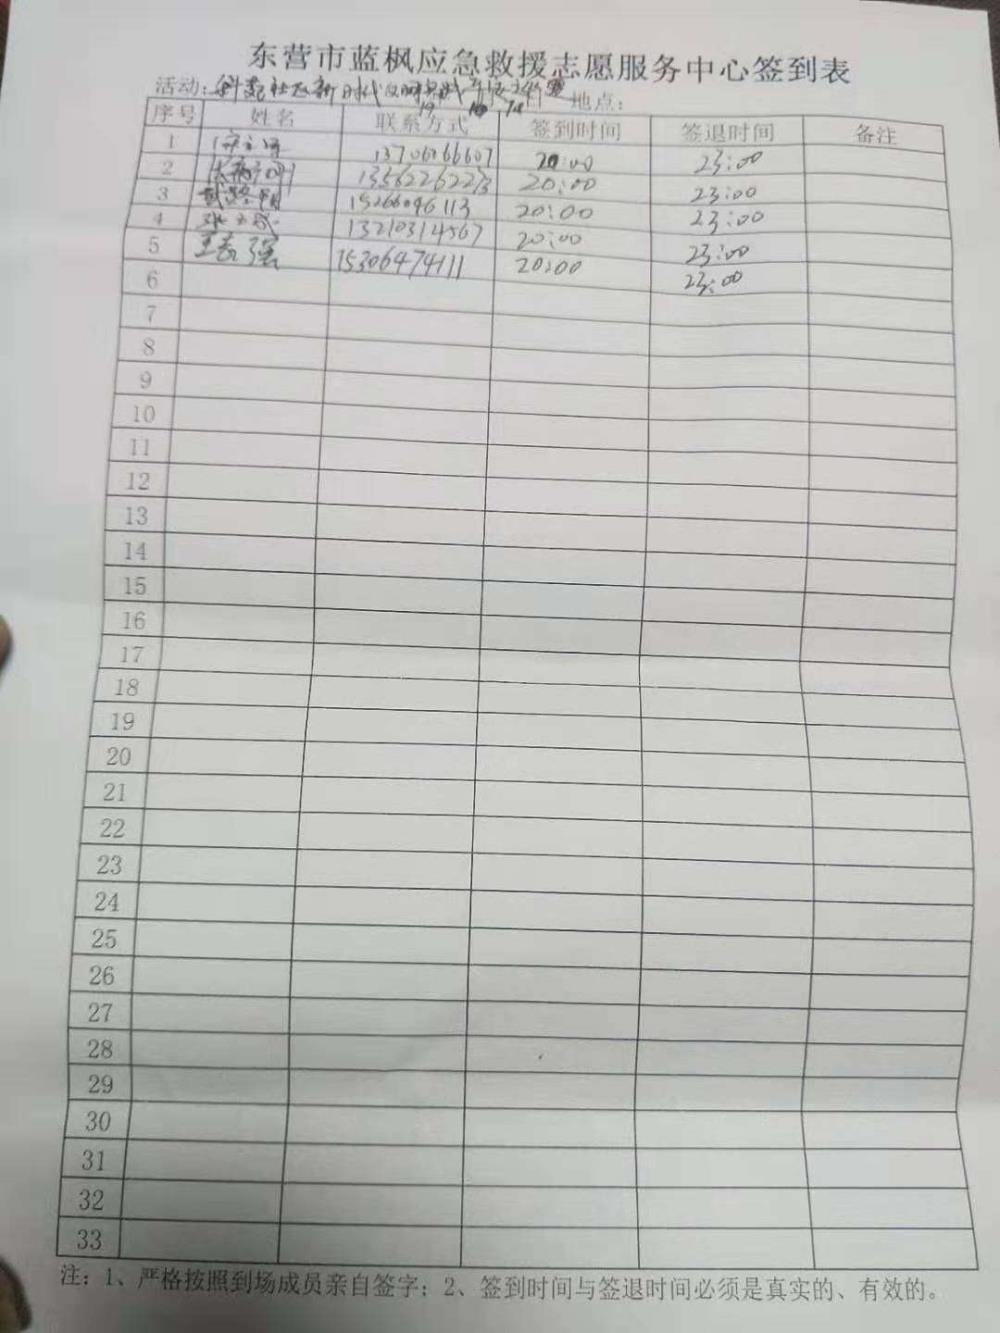 东营市蓝枫应急救援志愿服务中心签到表
活动: 社区新时代文明实践 地点:
序号 姓名 联系方式 签到时间 签退时间 备注
1 13706366607 20:00 23:00
2 13562262273 20:00 23:00
3 15266046113 20:00 23:00
4 13210314567 20:00 23:00
5 王 强 15306474111 20:00 23:00
6
7
8
9
10
11
12
13
14
15
16
17
18
19
20
21
22
23
24
25
26
27
28
29
30
31
32
33
注:1、严格按照到场成员亲自签字;2、签到时间与签退时间必须是真实的、有效的。